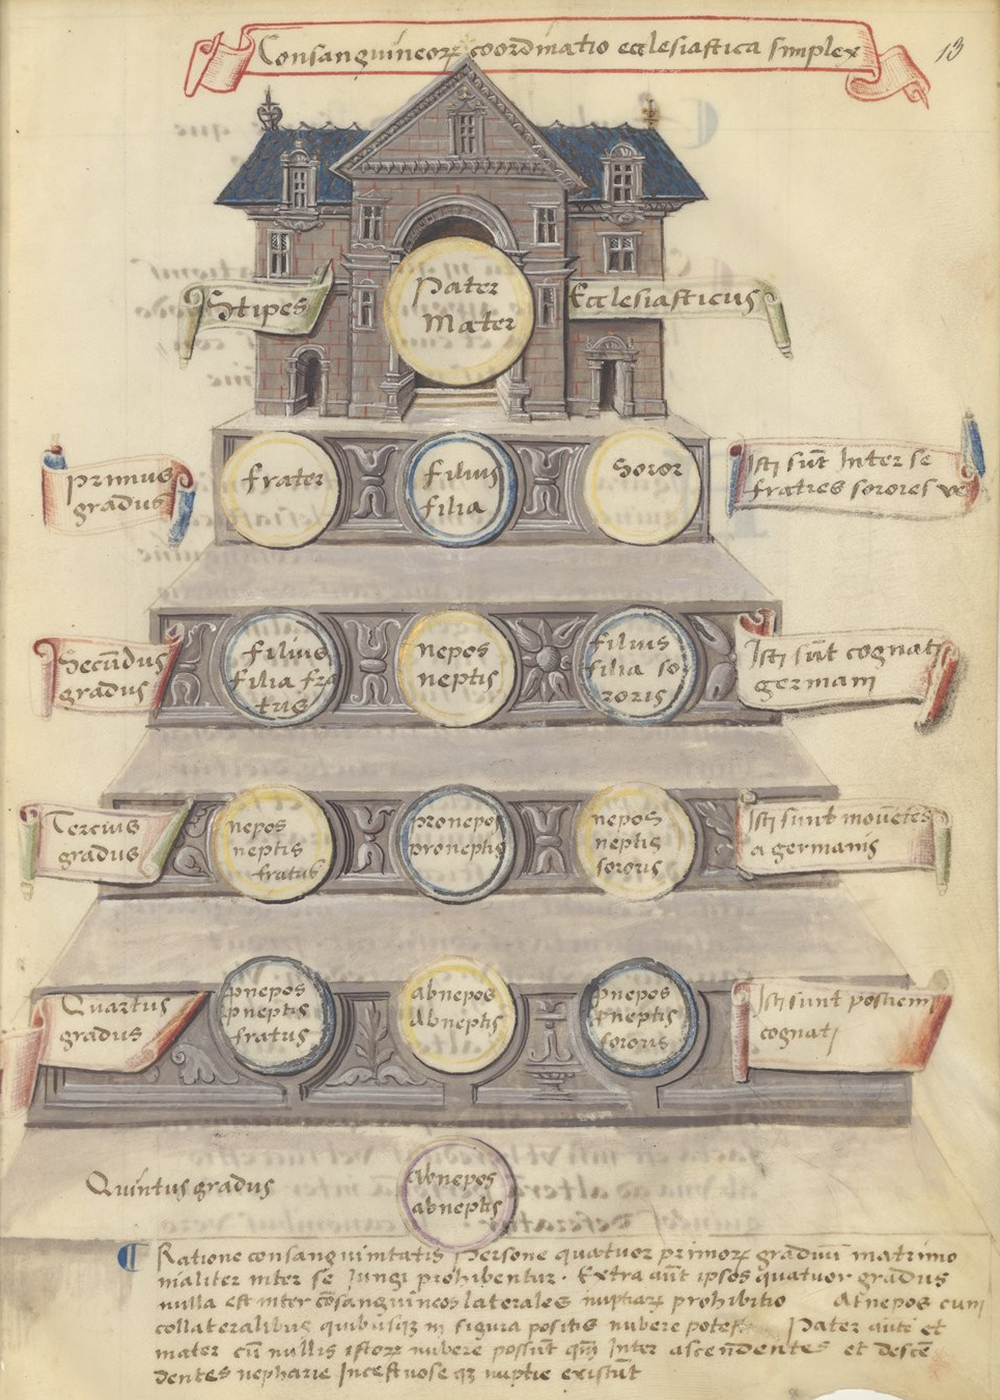 Consanguineoꝝ coordinatio ecclesiastica simplex
13
Pater
Mater
Stipes
Ecclesiasticus
primus
gradus
frater
filius
filia
Soror
Isti sūt Inter se
fratres sorores ve
Secūdus
gradus
filius
filia fra
tris
nepos
neptis
filius
filia so
roris
Isti sūt cognati
germani
Tercius
gradus
nepos
neptis
fratris
pronepos
proneptis
nepos
neptis
sororis
Isti sunt
a germanis
Quartus
gradus
ꝓnepos
ꝓneptis
fratris
abnepos
Abneptis
ꝓnepos
ꝓneptis
sororis
Isti sunt
cognati
Quintus gradus
abnepos
abneptis
Ratione consanguinitatis Persone quatuor primoꝝ graduū matrimo
nialiter inter se Iungi prohibentur. Extra aūt ipsos quatuor gradus
nulla est inter cōsanguineos laterales nuptiaꝝ prohibitio Atnepos cum
collateralibus quibusqꝫ in figura positis nubere potest Pater autē et
mater cū nullis istoꝝ nubere possūt qm̄ Inter ascendentes et descē
dentes nepharie Incestuose qꝫ nuptie existūt